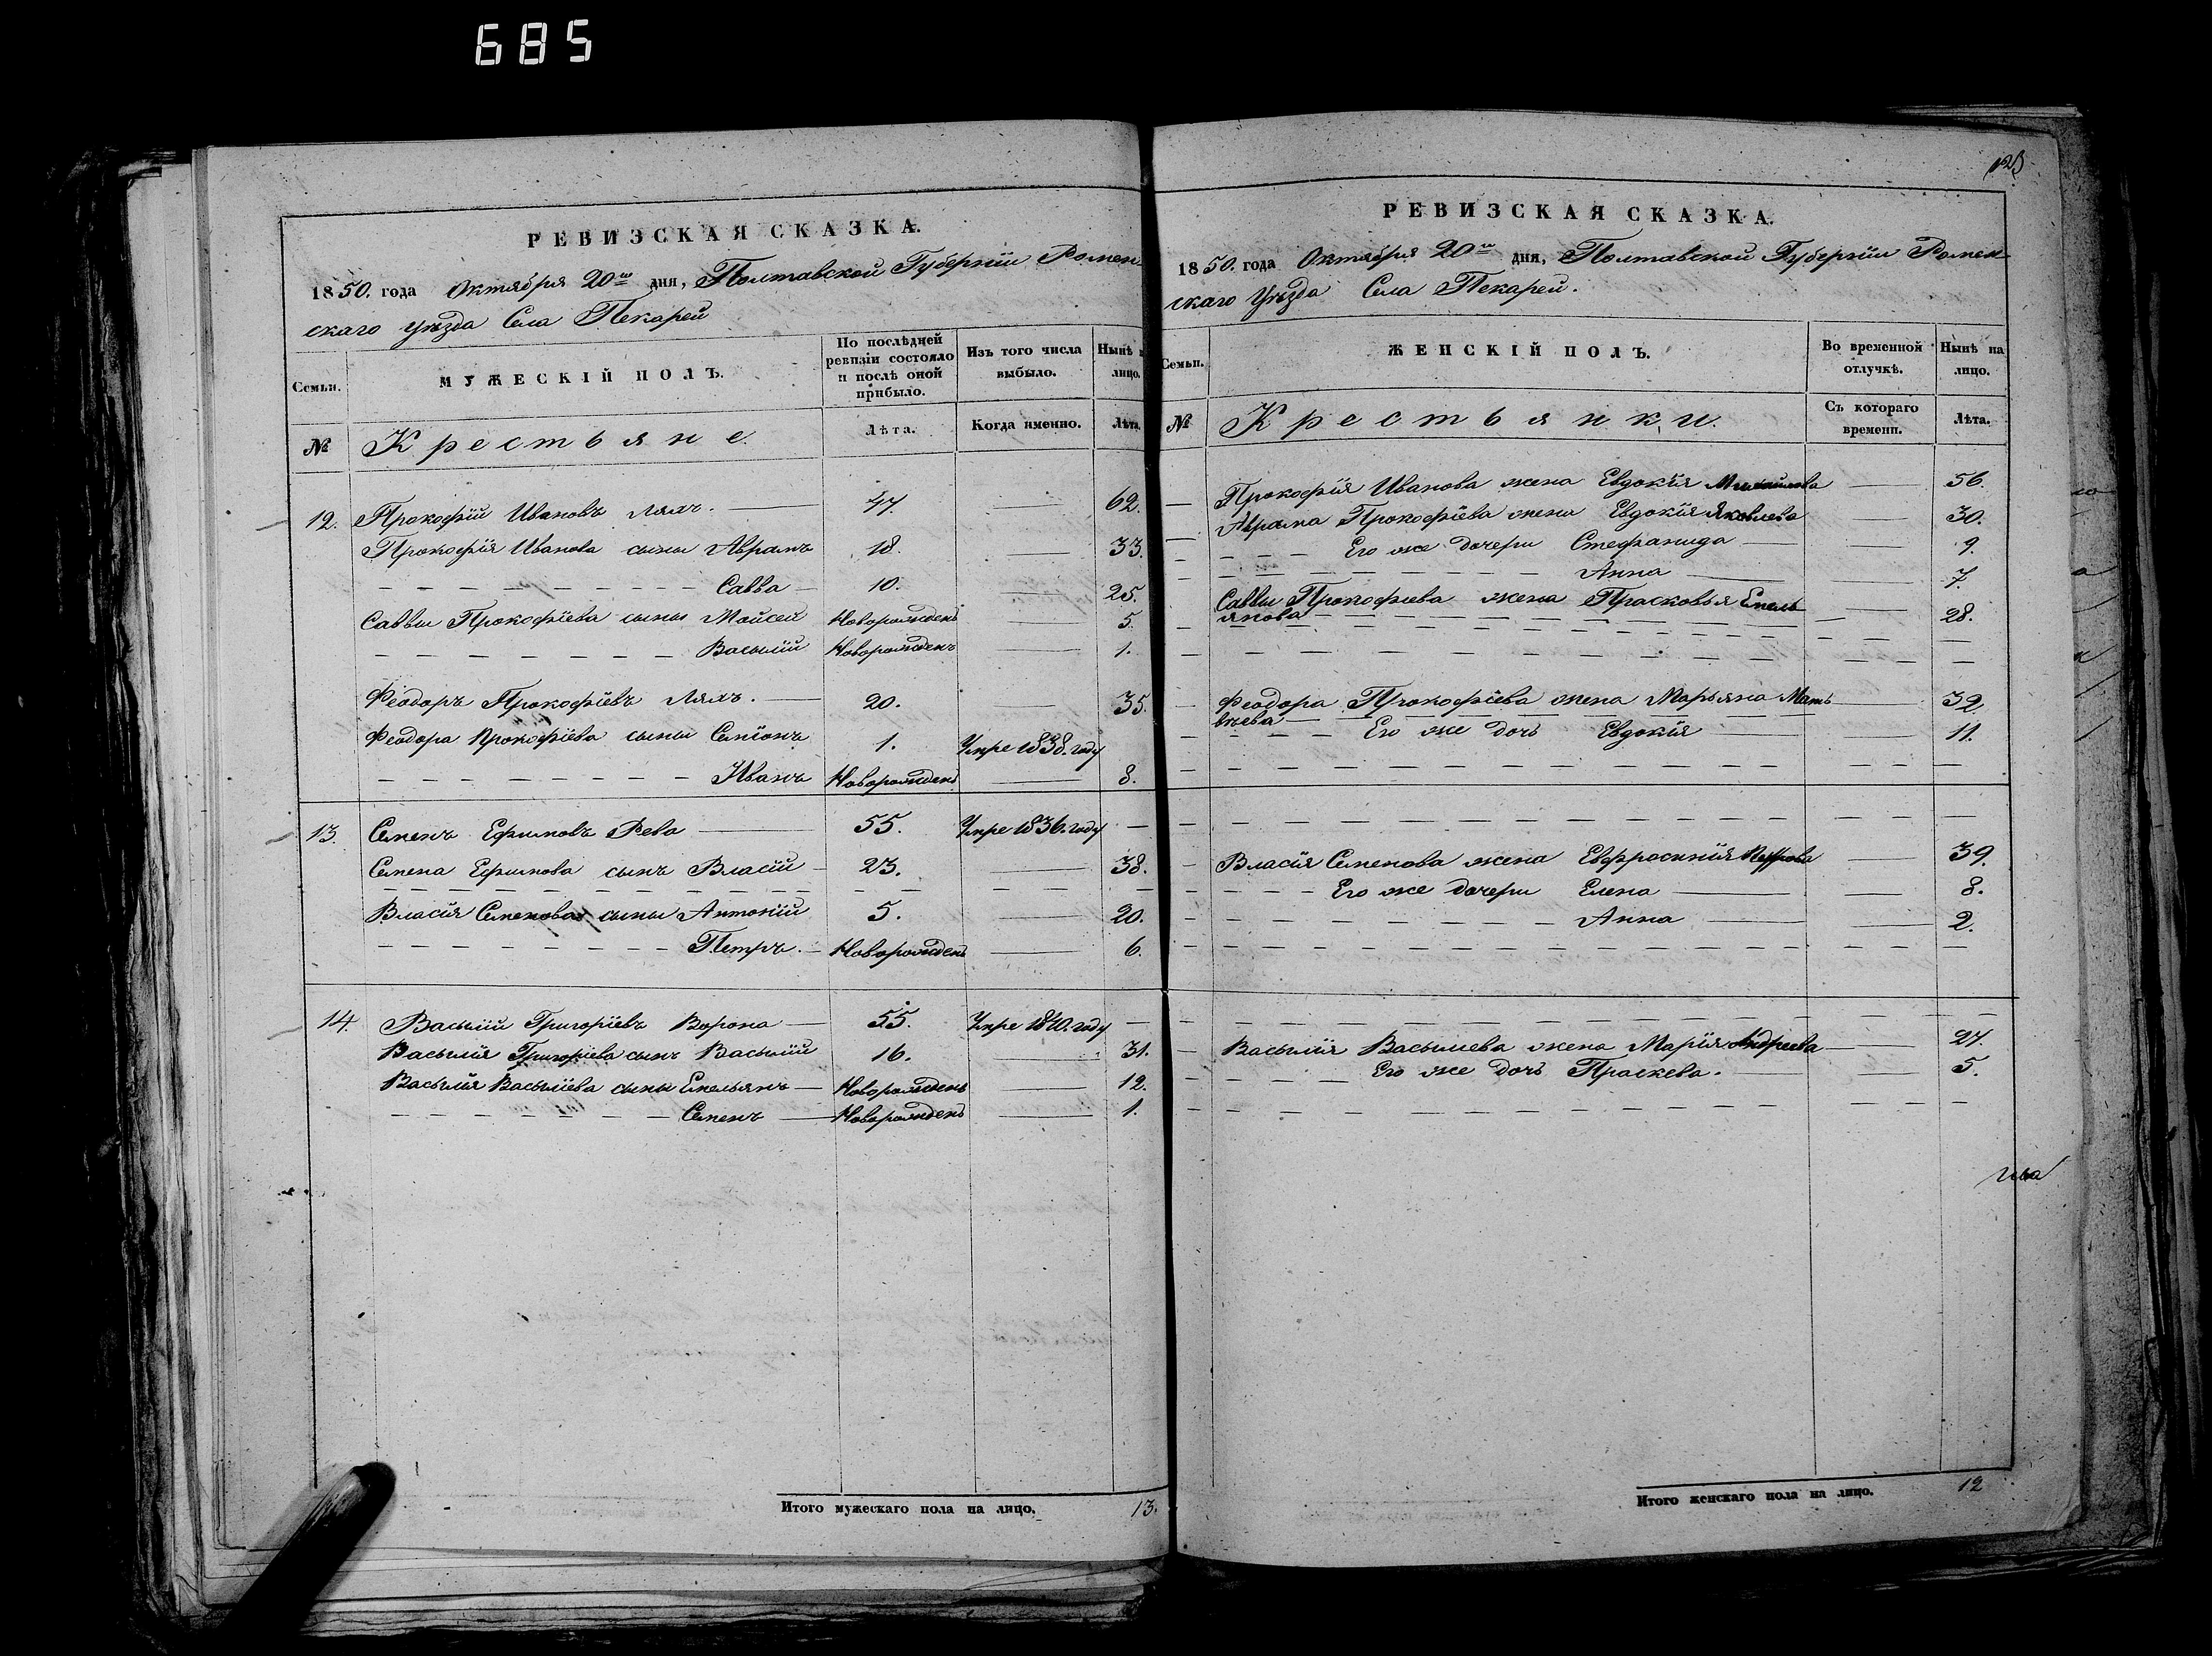 685
РЕВИЗСКАЯ СКАЗКА.
1850. года Октября 20го дня, Полтавской Губерніи Ромен-
скаго уѣзда Села Пекарей
Семьи.
МУЖЕСКІЙ ПОЛЪ.
По послѣдней ревизіи состояло и послѣ оной прибыло.
Изъ того числа выбыло.
Нынѣ лицо.
№
Крестьяне.
Лѣта.
Когда именно.
Лѣта.
12. Прокофій Ивановъ Ляхъ. 47. 62.
Прокофія Иванова сыны Аврамъ 18. 33.
Савва 10. 25.
Саввы Прокофіева сыны Мойсей Новорожденъ 5.
Василій Новорожденъ 1.
Феодоръ Прокофіевъ Ляхъ. 20. 35.
Феодора Прокофіева сыны Семіонъ 1. Умре 1838. году
Иванъ Новорожденъ 8.
13. Семенъ Ефимовъ Рева 55. Умре 1836. году
Семена Ефимова сынъ Власій 23. 38.
Власія Семенова сыны Антоній 5. 20.
Петръ. Новорожденъ 6.
14. Василій Григоріевъ Ворона 55. Умре 1840. году
Василія Григоріева сынъ Василій 16. 31.
Василія Василіева сыны Емельянъ Новорожденъ 12.
Семенъ Новорожденъ 1.
Итого мужескаго пола на лицо. 13.
125
РЕВИЗСКАЯ СКАЗКА.
1850. года Октября 20го дня, Полтавской Губерніи Ромен-
скаго Уѣзда Села Пекарей.
Семьи.
ЖЕНСКІЙ ПОЛЪ.
Во временной отлучкѣ.
Нынѣ на лицо.
№
Крестьянки.
Съ котораго времени.
Лѣта.
Прокофія Иванова жена Евдокія Михайлова 56.
Аврама Прокофіева жена Евдокія Яковлева 30.
Его же дочери Стефанида 9.
Анна 7.
Саввы Прокофіева жена Прасковья Емель
янова 28.
Феодора Прокофіева жена Марьяна Мать
вѣева 32
Его же дочь Евдокія 11.
Власія Семенова жена Евфросинія Петрова 39.
Его же дочери Елена 8.
Анна 2.
Василія Василиева жена Марія Андреева 27.
Его же дочь Праскева. 5.
Итого женскаго пола на лицо. 12